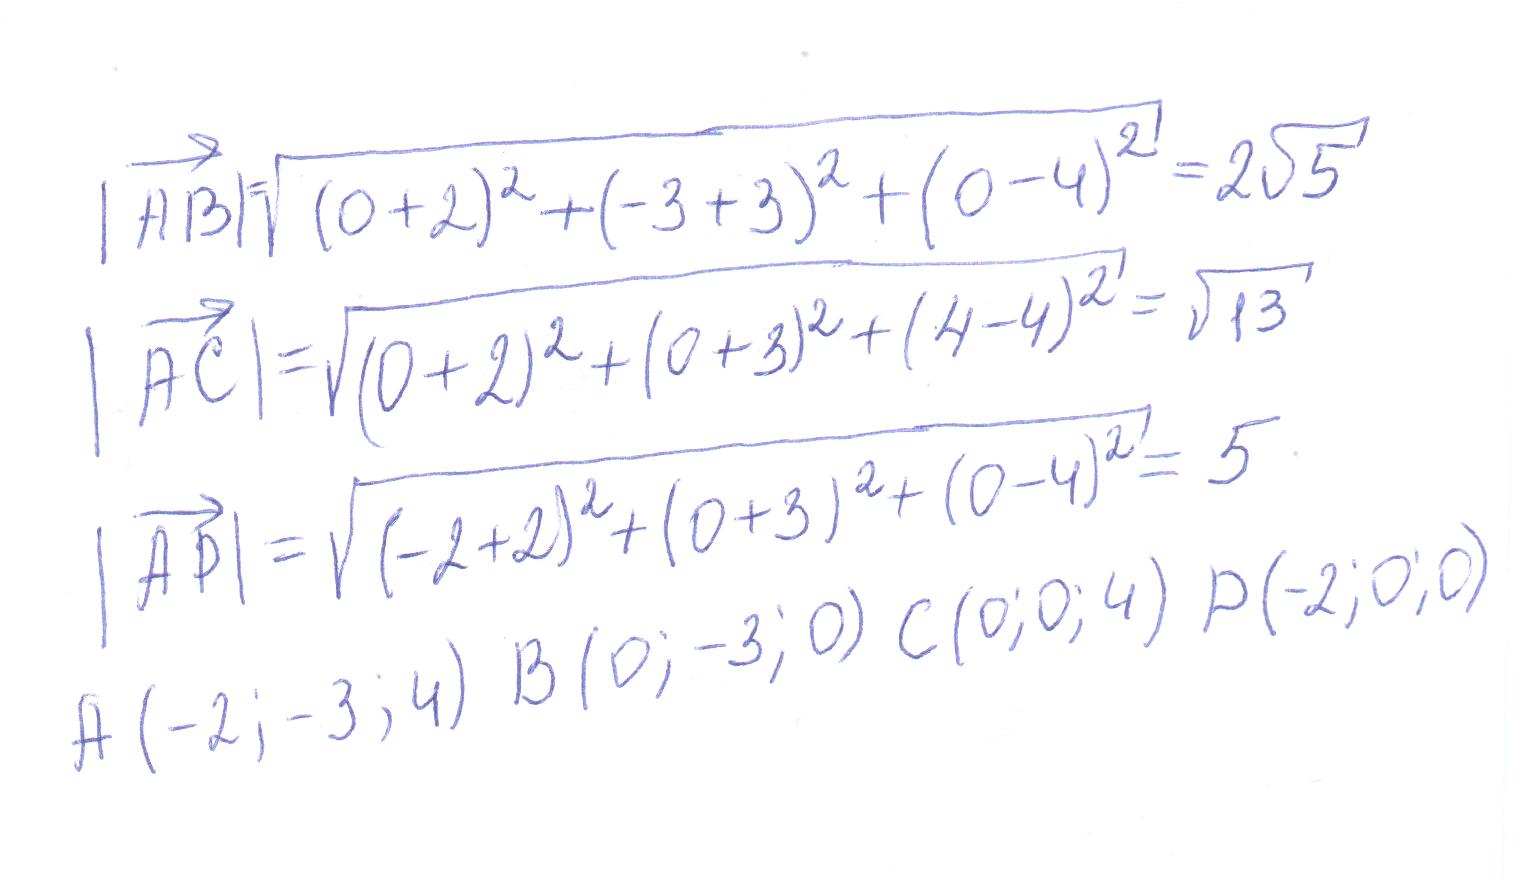 |AB| = √((0+2)² + (-3+3)² + (0-4)²) = 2√5
|AC| = √((0+2)² + (0+3)² + (4-4)²) = √13
|AD| = √((-2+2)² + (0+3)² + (0-4)²) = 5
A(-2; -3; 4) B(0; -3; 0) C(0; 0; 4) D(-2; 0; 0)